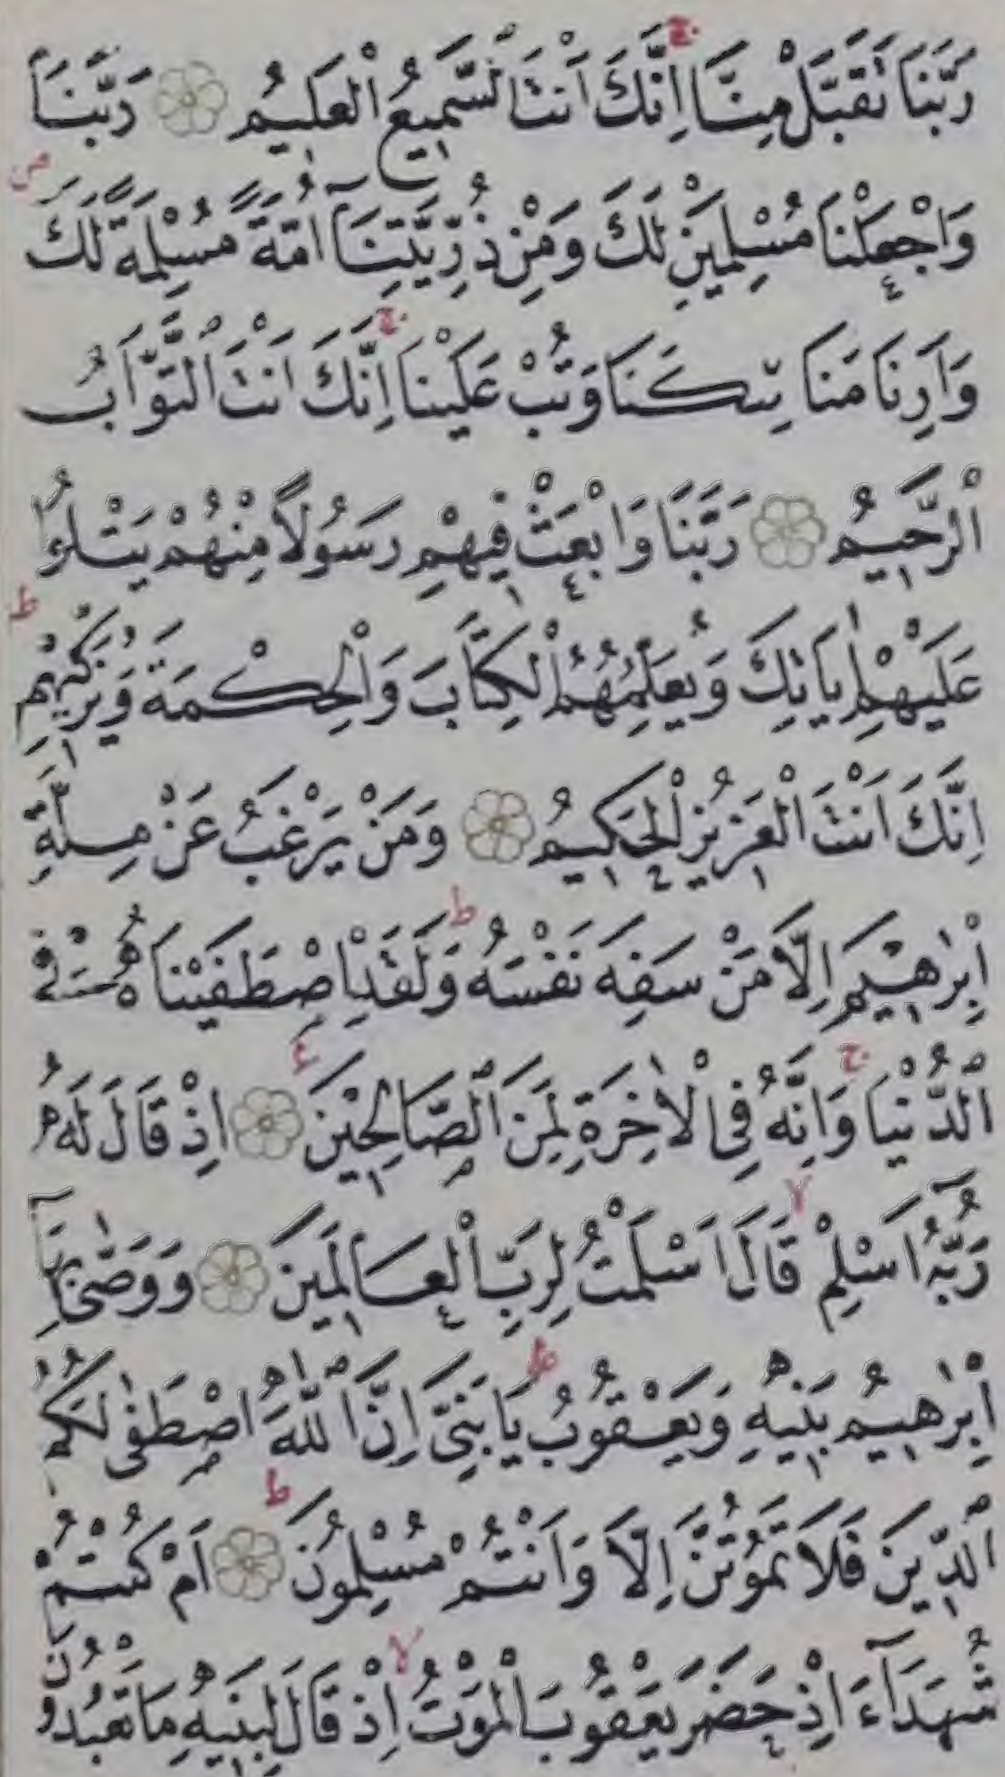 رَبَّنَا تَقَبَّلْ مِنَّا اِنَّكَ اَنْتَ السَّمٖيعُ الْعَلٖيمُ رَبَّنَا
وَاجْعَلْنَا مُسْلِمَيْنِ لَكَ وَمِنْ ذُرِّيَّتِنَٓا اُمَّةً مُسْلِمَةً لَكَ
وَاَرِنَا مَنَاسِكَنَا وَتُبْ عَلَيْنَا اِنَّكَ اَنْتَ التَّوَّابُ
الرَّحٖيمُ رَبَّنَا وَابْعَثْ فٖيهِمْ رَسُولًا مِنْهُمْ يَتْلُوا
عَلَيْهِمْ اٰيَاتِكَ وَيُعَلِّمُهُمُ الْكِتَابَ وَالْحِكْمَةَ وَيُزَكّٖيهِمْ
اِنَّكَ اَنْتَ الْعَزٖيزُ الْحَكٖيمُ وَمَنْ يَرْغَبُ عَنْ مِلَّةِ
اِبْرٰهٖيمَ اِلَّا مَنْ سَفِهَ نَفْسَهُ وَلَقَدِ اصْطَفَيْنَاهُ فِى
الدُّنْيَا وَاِنَّهُ فِى الْاٰخِرَةِ لَمِنَ الصَّالِحٖينَ اِذْ قَالَ لَهُ
رَبُّهُٓ اَسْلِمْ قَالَ اَسْلَمْتُ لِرَبِّ الْعَالَمٖينَ وَوَصّٰى بِهَٓا
اِبْرٰهٖيمُ بَنٖيهِ وَيَعْقُوبُ يَا بَنِىَّ اِنَّ اللّٰهَ اصْطَفٰى لَكُمُ
الدّٖينَ فَلَا تَمُوتُنَّ اِلَّا وَاَنْتُمْ مُسْلِمُونَ اَمْ كُنْتُمْ
شُهَدَٓاءَ اِذْ حَضَرَ يَعْقُوبَ الْمَوْتُ اِذْ قَالَ لِبَنٖيهِ مَا تَعْبُدُونَ